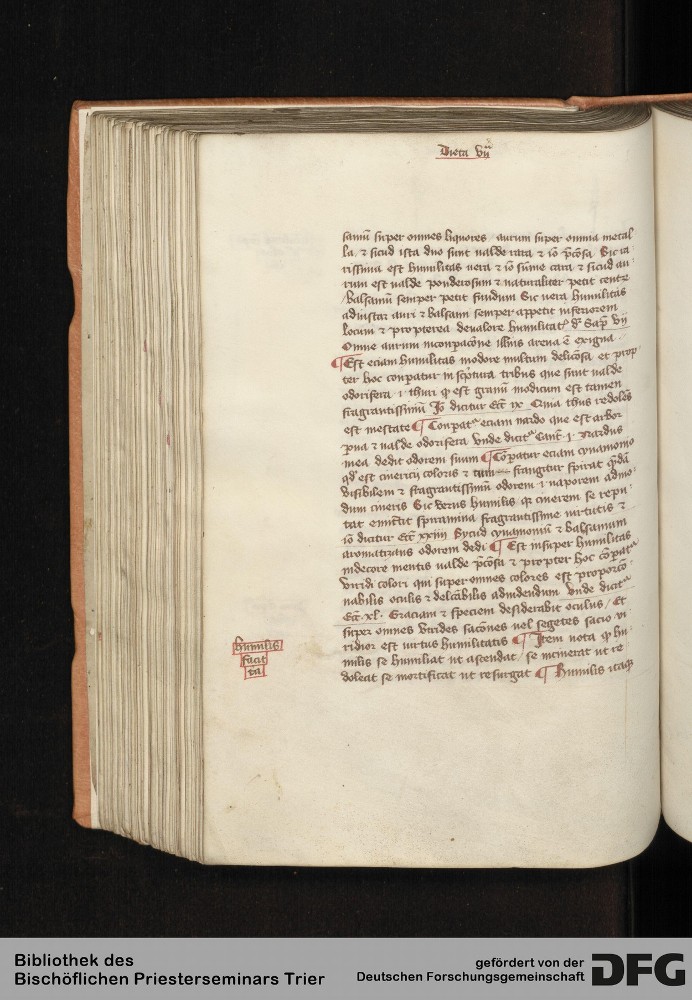 Dieta vii
samu super omnes liquores / aurum super omnia metal
la, ⁊ sicud ista duo sunt valde rara ⁊ io p̄cosa Sic ca
rissima est humilitas vera ⁊ io sūme cara ⁊ sicud au
rum est valde ponderosum ⁊ naturaliter petit centr̄
/ balsamū semper petit fundum Sic vera humilitas
adinstar auri ⁊ balsami semper appetit inferiorem
locum ⁊ propterea de valore humilitatꝭ dr̄ Sap̄ vij
Omne aurum in conpacōne illius arena ē exigua
¶ Est eciam humilitas in odore multum delicōsa et prop
ter hoc conpatur in sc̄ptura tribus que sunt valde
odorifera / thuri qꝫ est granū modicum est tamen
fragrantissimū Io dicitur Ecc̄ ix Quia thus redolēs
est in estate ¶ Conpatꝰ eciam nardo que est arbor
pua ⁊ valde odorifera vnde dicitꝰ Cant̄ · j · Nardus
mea dedit odorem suum ¶ Cōpatur eciam cynamomo
qd' est cinericij coloris ⁊ cum frangitur spirat qd̄ā
visibilem ⁊ fragrantissimū odorem ⁊ vaporem admo
dum cineris Sic verus humilis qꝫ cinerem se repu
tat emittit spiramina fragrantissime virtutis ⁊
io dicitur Ecc̄ xxiiij Sicud cynamomū ⁊ balsamum
aromatizans odorem dedi ¶ Est insuper humilitas
in decore mentis valde p̄cosa ⁊ propter hoc cōpatꝰ
viridi colori qui super omnes colores est proporcō
nabilis oculis ⁊ delc̄abilis ad videndum vnde dicitꝰ
Ecc̄ · xl · Graciam ⁊ speciem desiderabit oculus / Et
super omnes virides sacōnes vel segetes sacio vi
ridior est virtus humilitatis ¶ Item nota qꝫ hu
milis se humiliat ut ascendat / se incinerat ut re
doleat se mortificat ut resurgat ¶ Humilis itaqꝫ
humilis
facit
Bibliothek des
Bischöflichen Priesterseminars Trier
gefördert von der
Deutschen Forschungsgemeinschaft
DFG